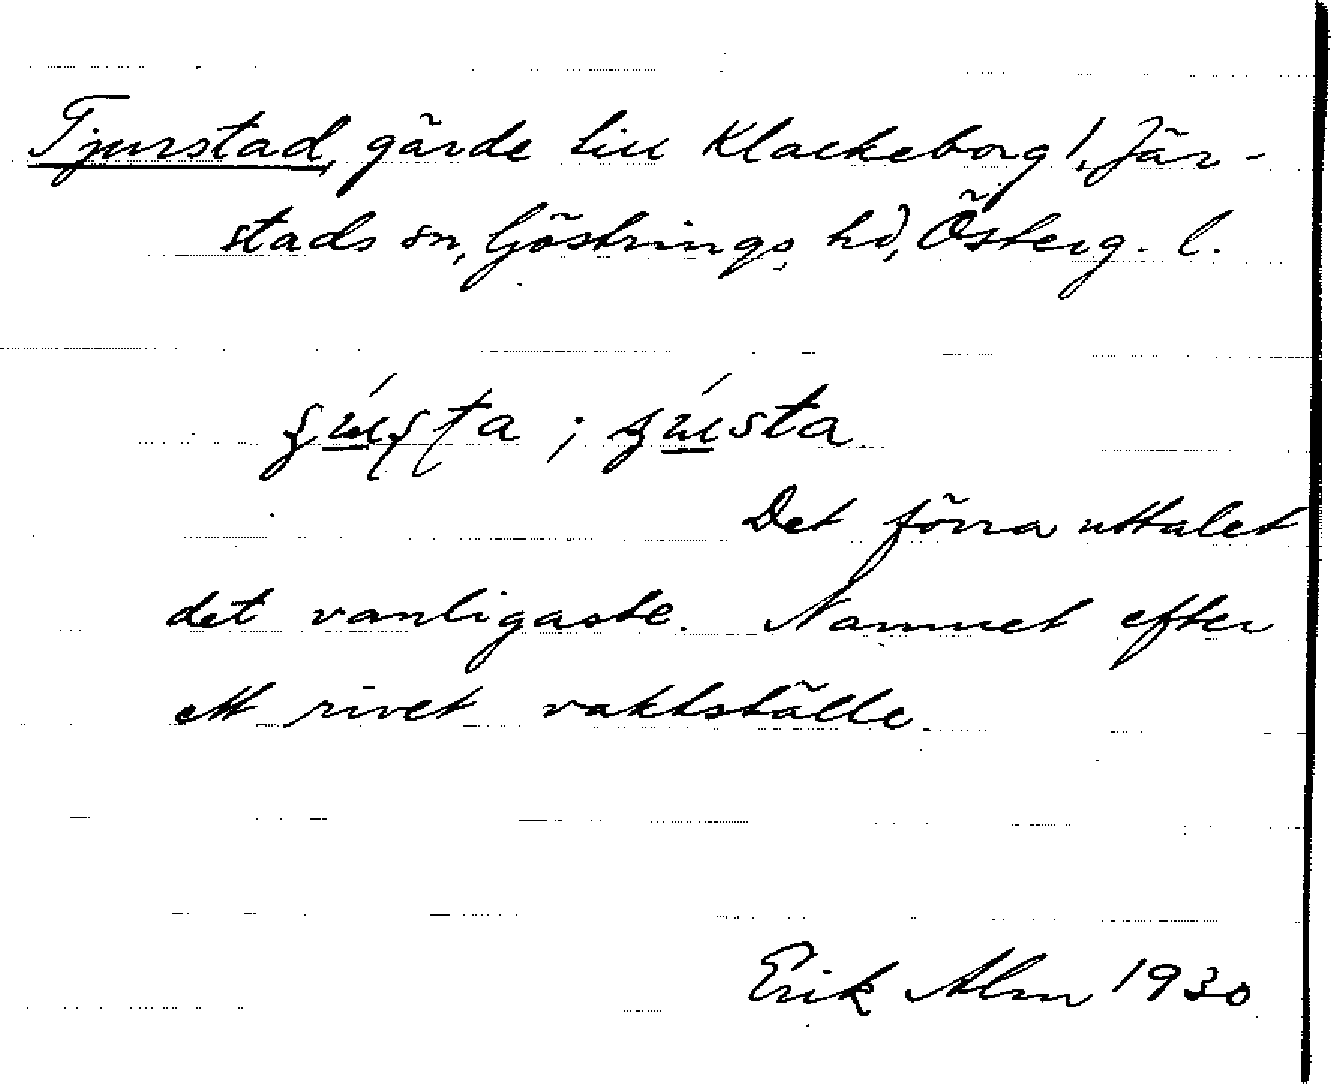 Tjurstad, gärde till Klackeborg 1, Jär-
stads sn, Göstrings hd, Österg. l.
Det förra uttalet
det vanligaste. Namnet efter
ett rivet vaktställe.
Erik Alm 1930